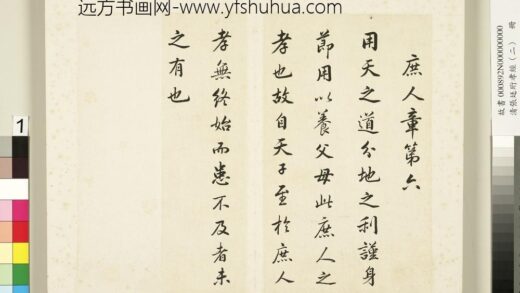 远方书画网-www.yfshuhua.com
庶人章第六
用天之道分地之利謹身
節用以養父母此庶人之
孝也故自天子至於庶人
孝無終始而患不及者未
之有也
故書000892N000000000 冊
清張廷玉孝經（二）
1